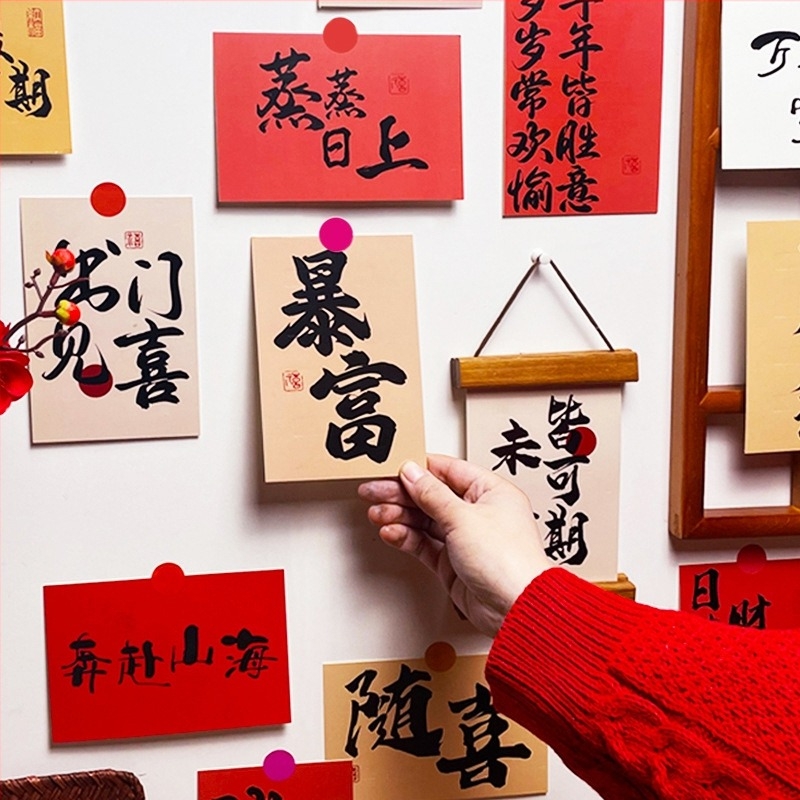 期
蒸蒸
日上
岁岁常欢愉
年年皆胜意
万
门喜
见
暴富
皆可期
未
奔赴山海
随喜
日
财